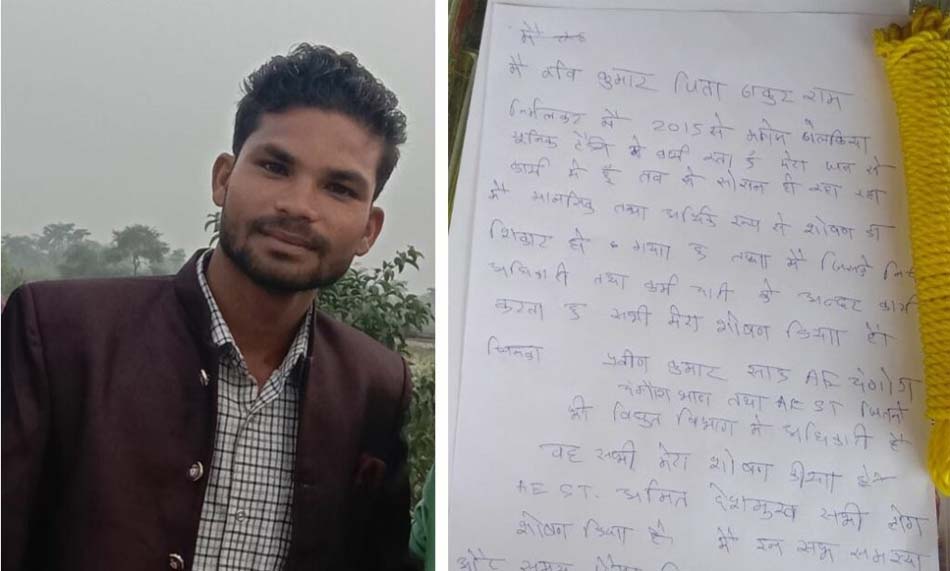 मै
मै रवि कुमार पिता ठाकुर राम
निर्मलकर मै 2015 से
मे कार्य करता हुं मेरा जब से
कार्य मे हुं तब से सोसन हो रहा
मै मानसिक तथा आर्थिक रूप से शोषण का
शिकार हो गया हुं तथा मै जितने
अधिकारी तथा कर्मचारी के अन्डर कार्य
करता हुं सभी मेरा शोषण किया है।
जिनका प्रवीण कुमार साहु AE
तथा AE ST जितने
भी विद्युत विभाग मे अधिकारी है
वह सभी मेरा शोषण किया है
AE ST. अमित देशमुख सभी लोग
शोषण किया है। मै इन सब समस्या